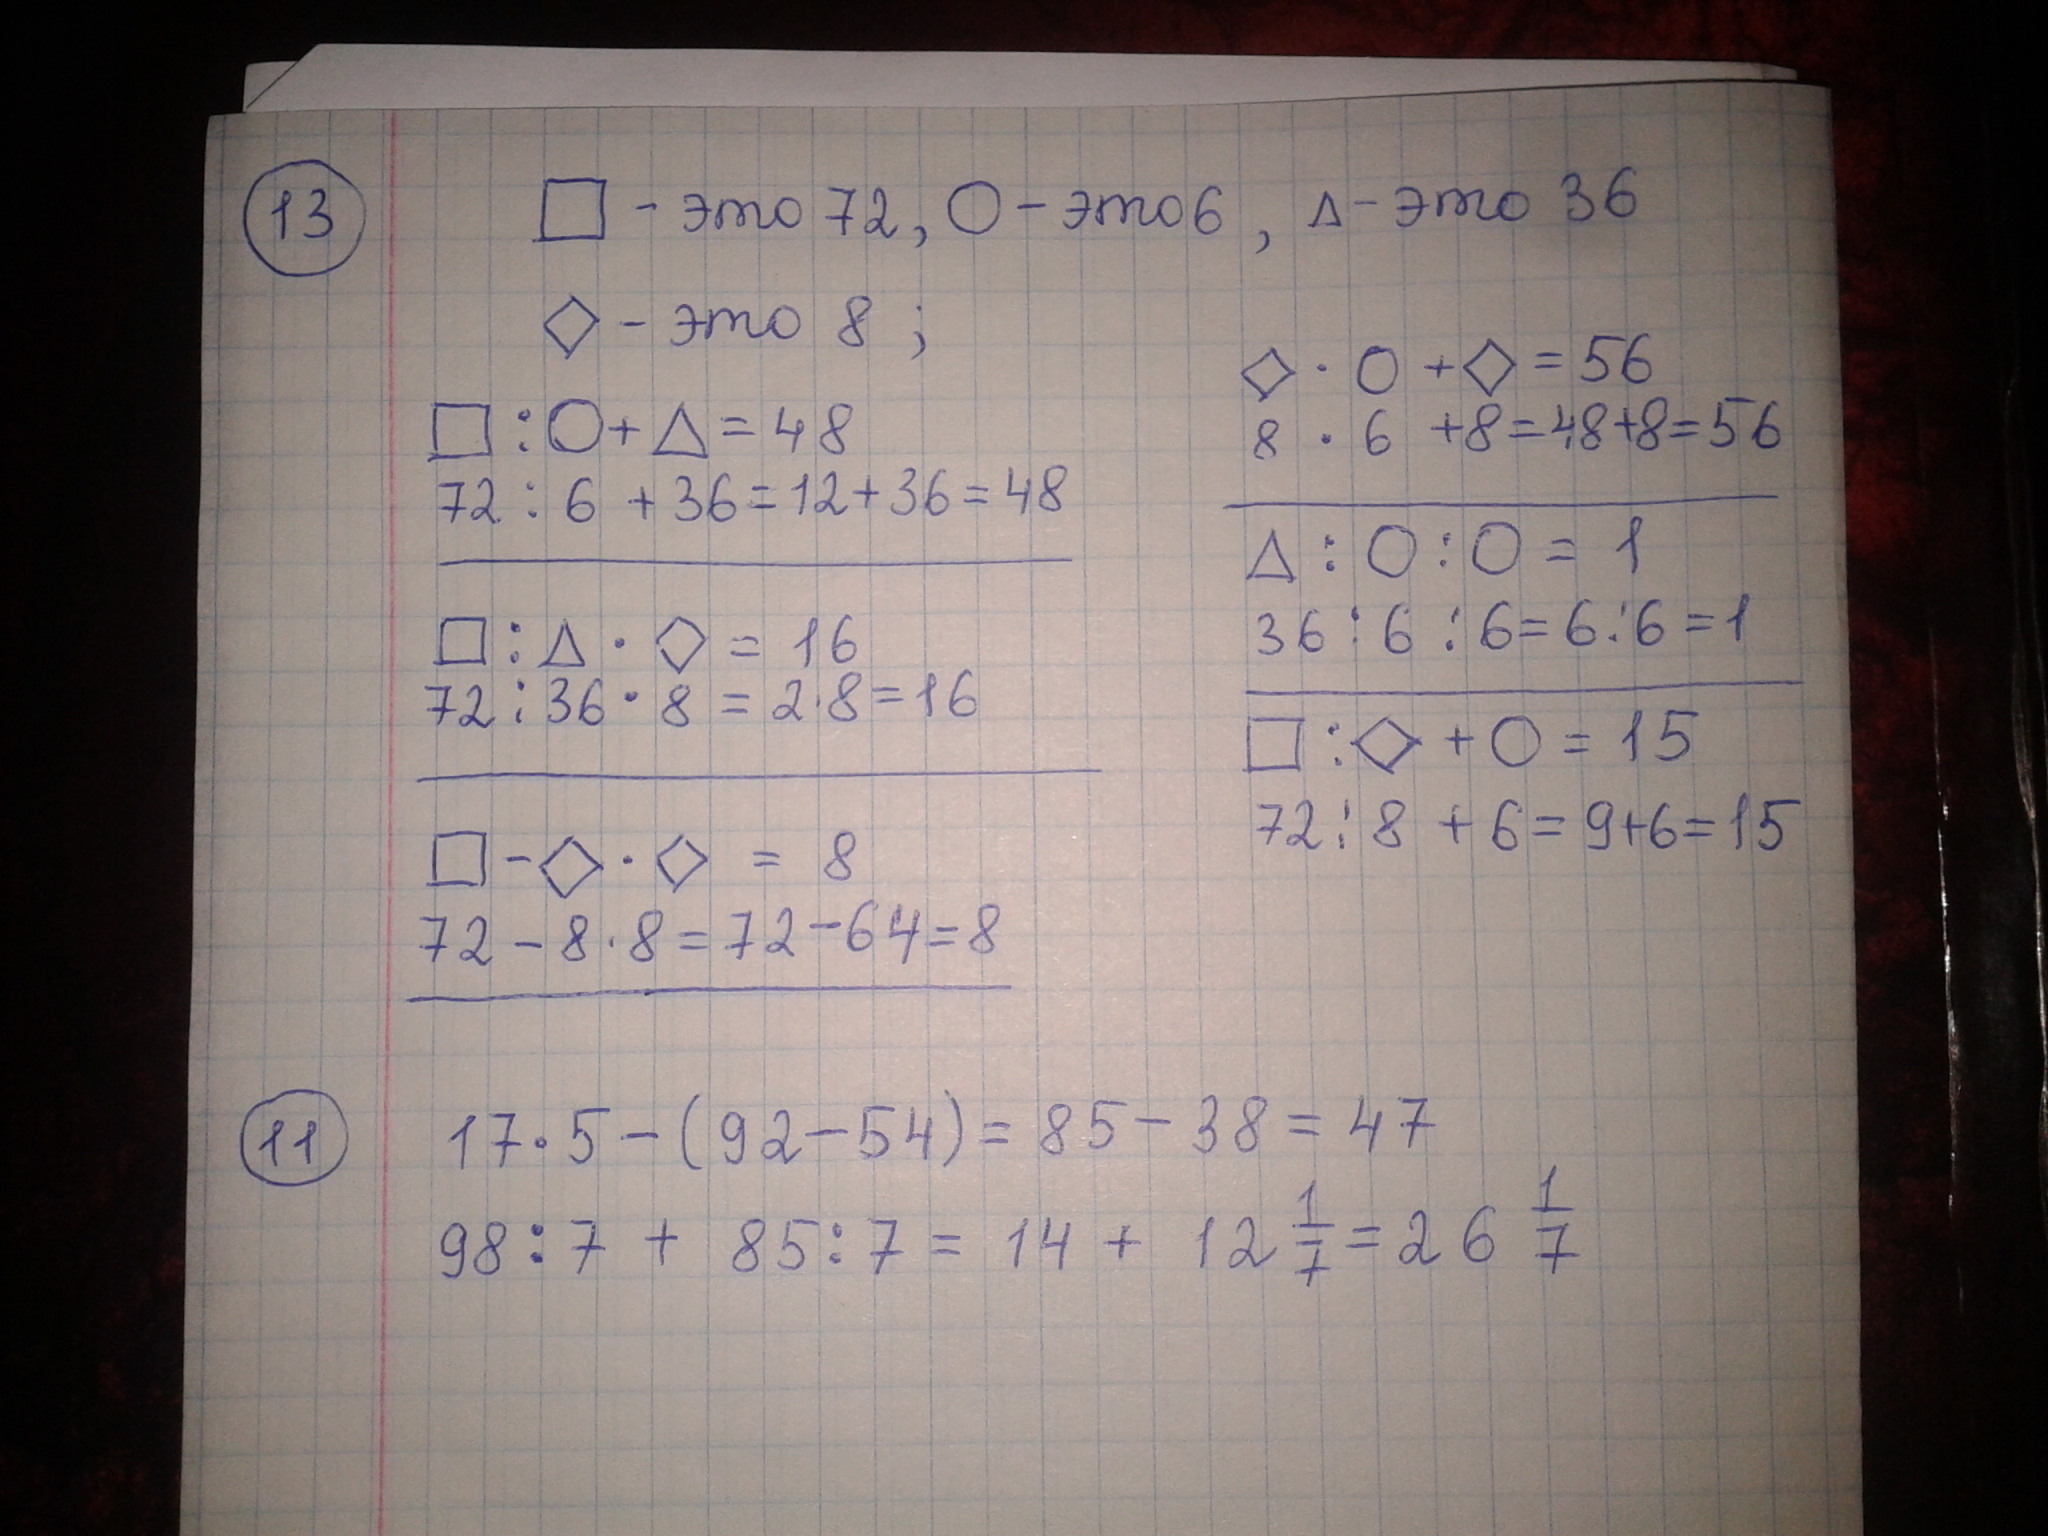 13 □ - это 72, ○ - это 6, △ - это 36
◇ - это 8 ;
□ : ○ + △ = 48
72 : 6 + 36 = 12 + 36 = 48
□ : △ · ◇ = 16
72 : 36 · 8 = 2 · 8 = 16
□ - ◇ · ◇ = 8
72 - 8 · 8 = 72 - 64 = 8
◇ · ○ + ◇ = 56
8 · 6 + 8 = 48 + 8 = 56
△ : ○ : ○ = 1
36 : 6 : 6 = 6 : 6 = 1
□ : ◇ + ○ = 15
72 : 8 + 6 = 9 + 6 = 15
11 17 · 5 - (92 - 54) = 85 - 38 = 47
98 : 7 + 85 : 7 = 14 + 12 1/7 = 26 1/7